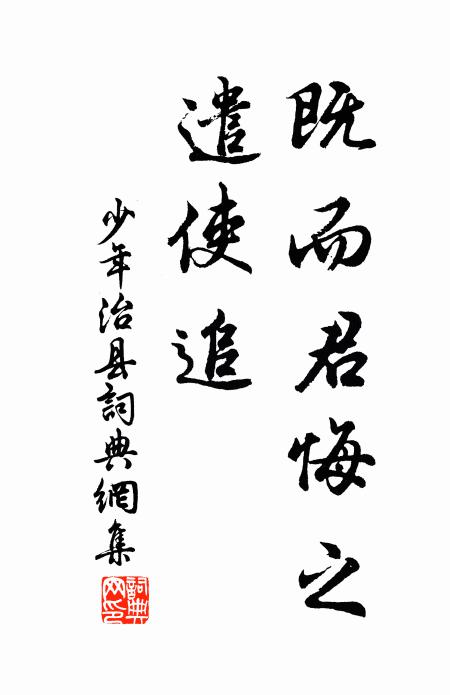 既而君悔之
遣使追
少年治县詞典網集
詞典
网印